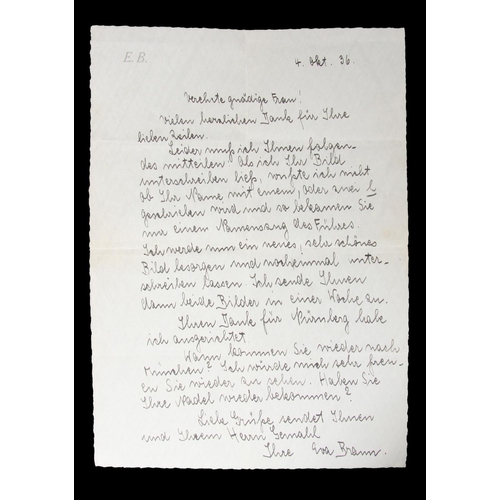 E.B.
4. Okt. 36.
Verehrte gnädige Frau!
Vielen herzlichen Dank für Ihre
lieben Zeilen.
Leider muß ich Ihnen folgen-
des mitteilen. Als ich Ihr Bild
unterschreiben ließ, wußte ich nicht
ob Ihr Name mit einem, oder zwei l
geschrieben wird und so bekamen Sie
nur einen Namenszug des Führers.
Ich werde nun ein neues, sehr schönes
Bild besorgen und nocheinmal unter-
schreiben lassen. Ich sende Ihnen
dann beide Bilder in einer Woche an.
Ihren Dank für Nürnberg habe
ich ausgerichtet.
Wann kommen Sie wieder nach
München? Ich würde mich sehr freu-
en Sie wieder zu sehen. Haben Sie
Ihre Nadel wieder bekommen?
Liebe Grüße sendet Ihnen
und Ihrem Herrn Gemahl
Ihre Eva Braun.